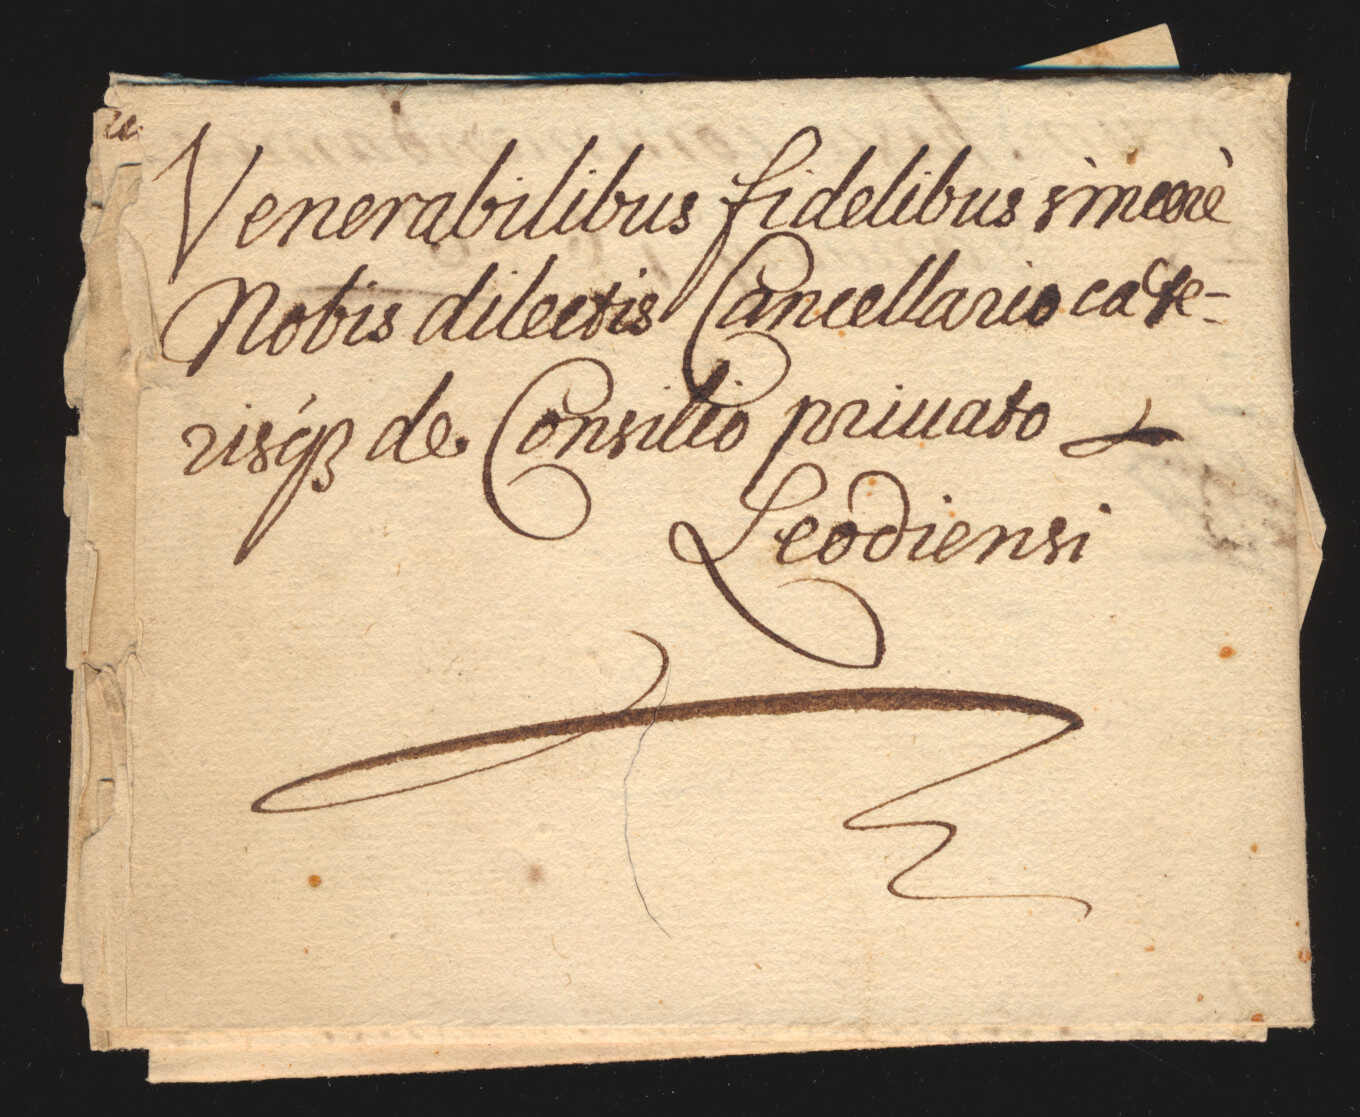 Venerabilibus fidelibus sincerè
Nobis dilectis Cancellario caete-
risq3 de Consilio priuato
Leodiensi